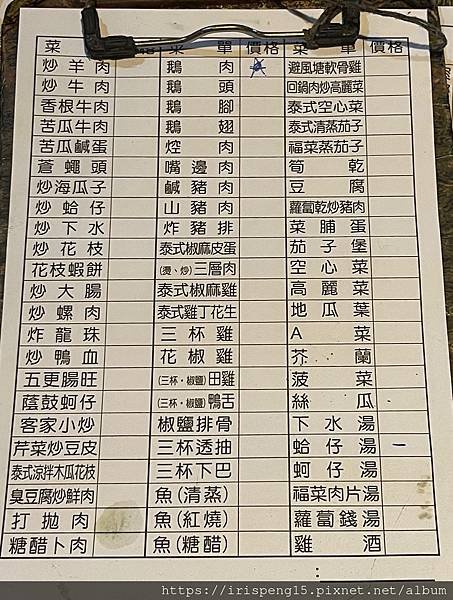 菜 單 價格 菜 單 價格 菜 單 價格
炒羊肉 鵝肉 避風塘軟骨雞
炒牛肉 鵝頭 回鍋肉炒高麗菜
香根牛肉 鵝腳 泰式空心菜
苦瓜牛肉 鵝翅 泰式清蒸茄子
苦瓜鹹蛋 焢肉 福菜蒸茄子
蒼蠅頭 嘴邊肉 筍乾
炒海瓜子 鹹豬肉 豆腐
炒蛤仔 山豬肉 蘿蔔乾炒豬肉
炒下水 炸豬排 菜脯蛋
炒花枝 泰式椒麻皮蛋 茄子堡
花枝蝦餅 (燙、炒)三層肉 空心菜
炒大腸 泰式椒麻雞 高麗菜
炒螺肉 泰式雞丁花生 地瓜葉
炸龍珠 三杯雞 A菜
炒鴨血 花椒雞 芥蘭
五更腸旺 (三杯，椒鹽)田雞 菠菜
蔭鼓蚵仔 (三杯，椒鹽)鴨舌 絲瓜
客家小炒 椒鹽排骨 下水湯
芹菜炒豆皮 三杯透抽 蛤仔湯 一
泰式涼拌木瓜花枝 三杯下巴 蚵仔湯
臭豆腐炒鮮肉 魚(清蒸) 福菜肉片湯
打拋肉 魚(紅燒) 蘿蔔錢湯
糖醋卜肉 魚(糖醋) 雞酒
https://irispeng15.pixnet.net/album